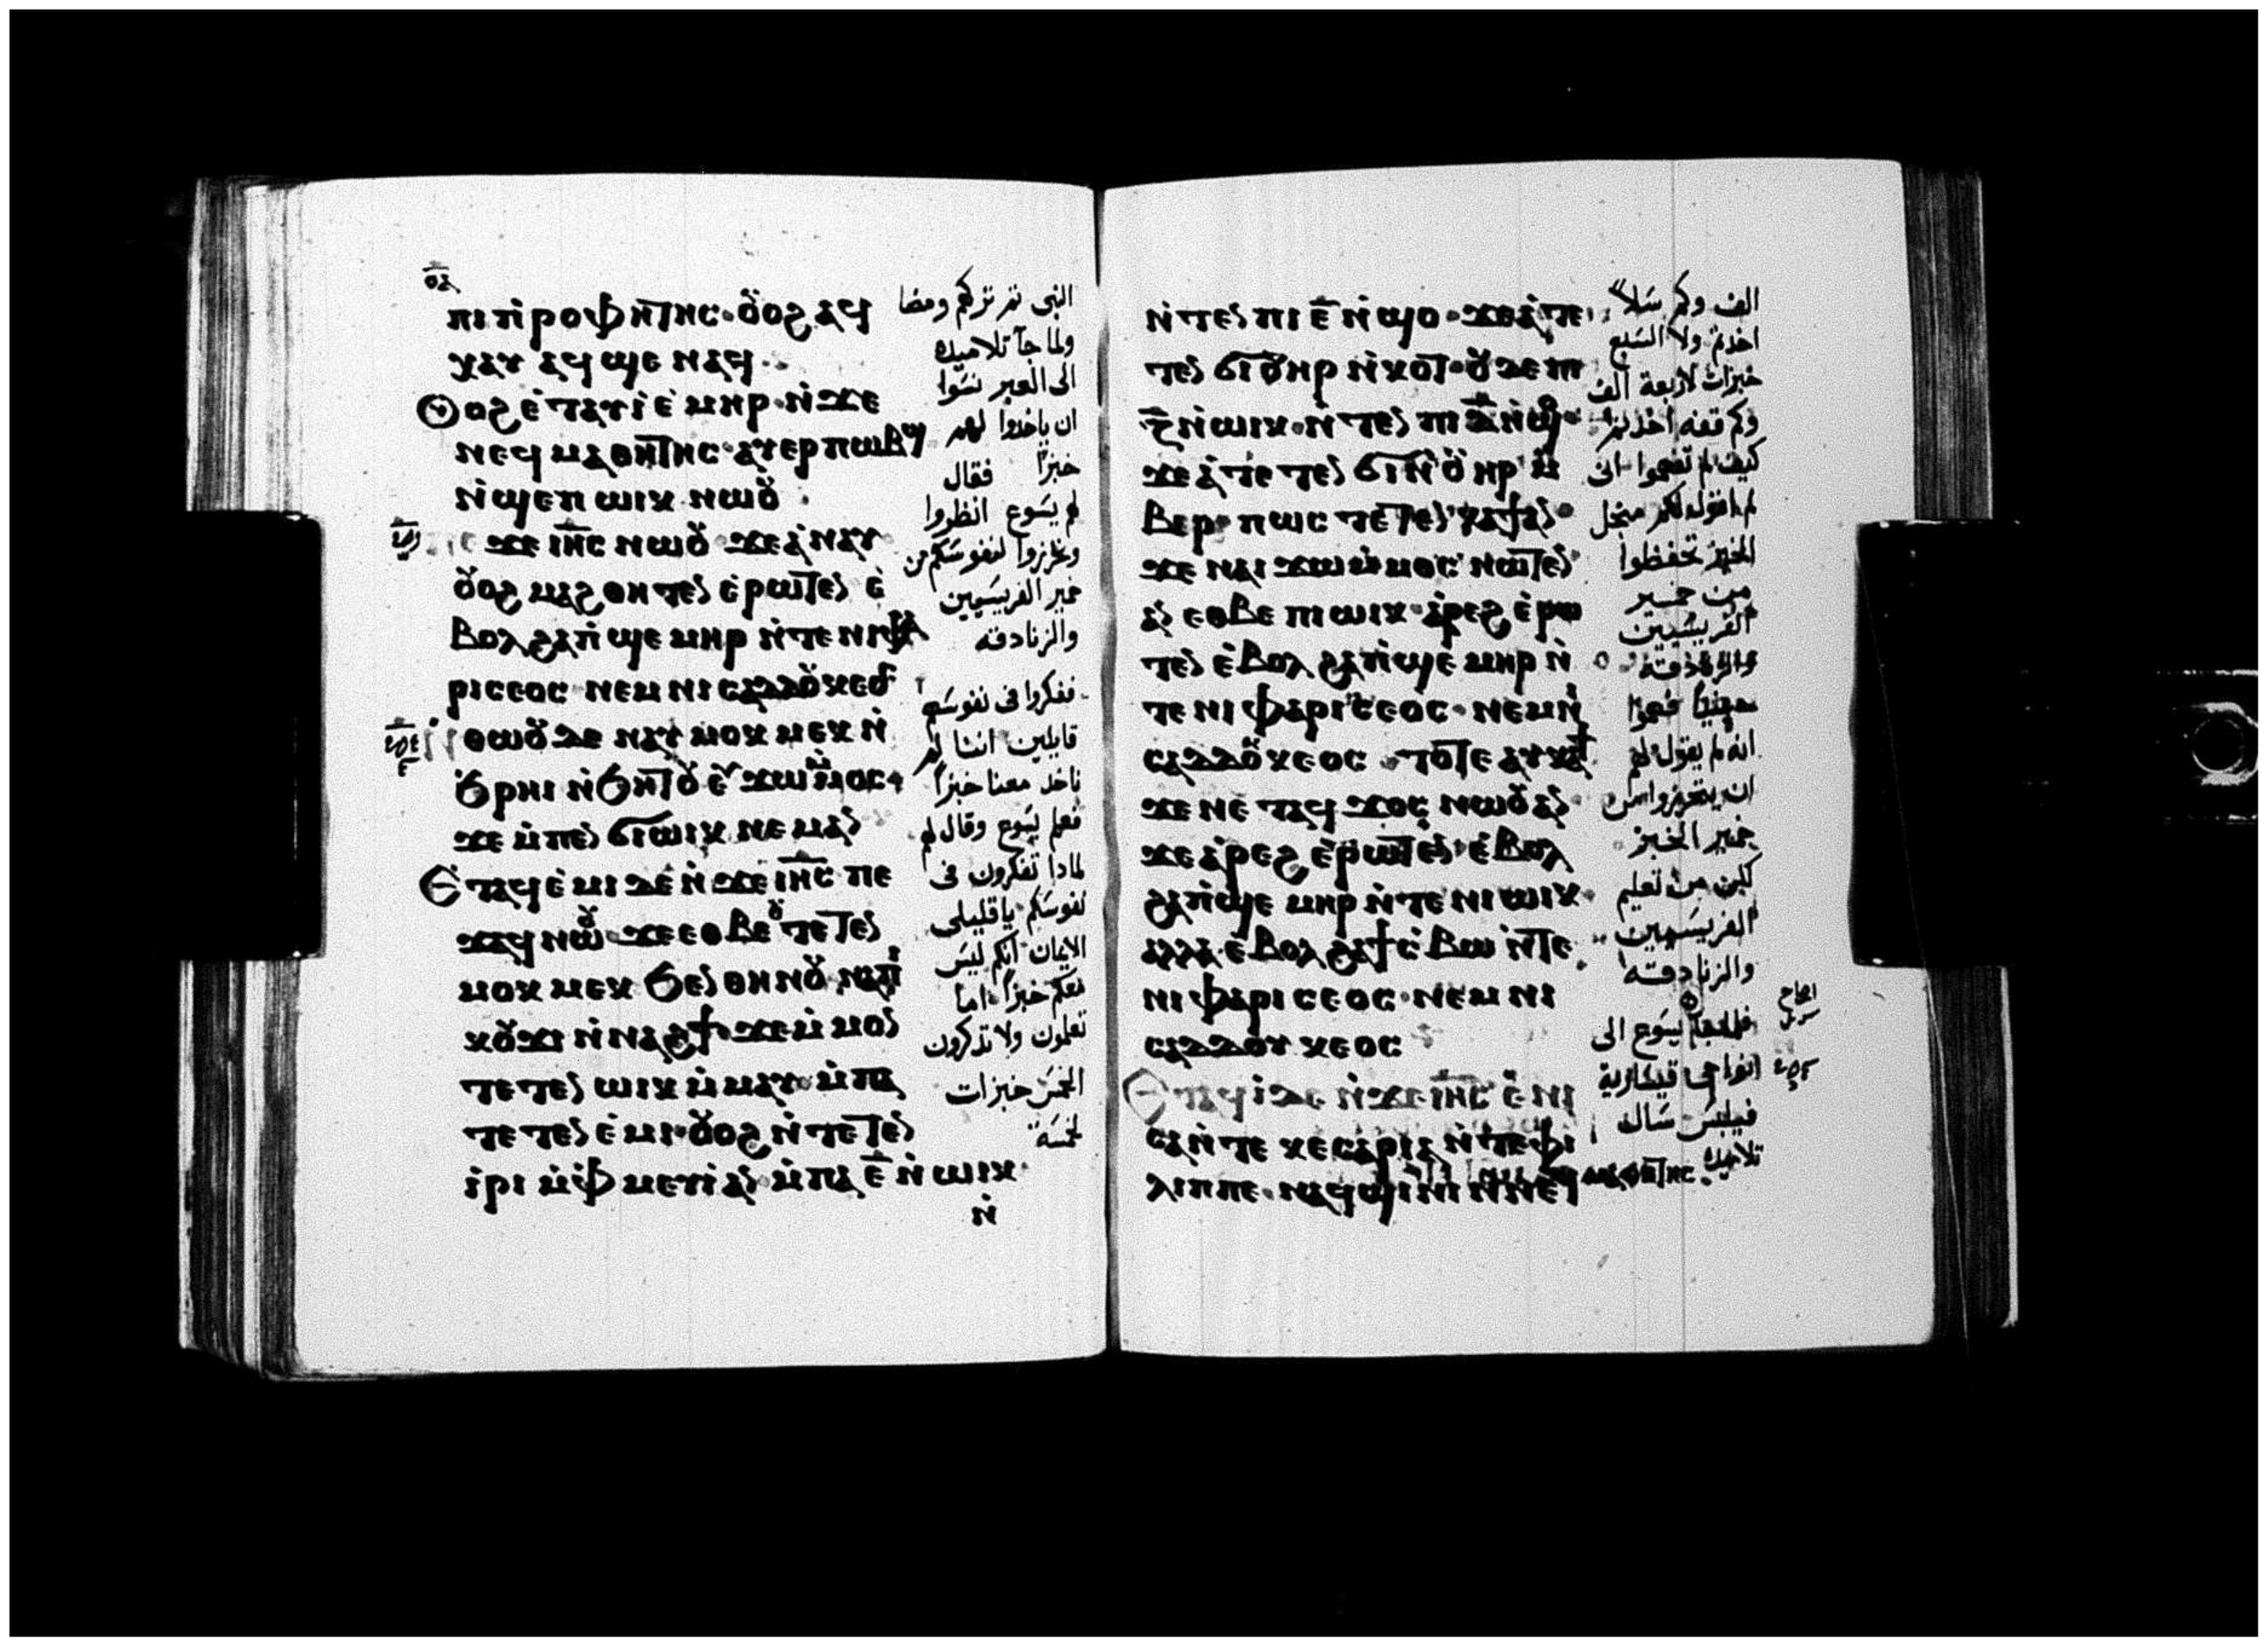 ⲟⲁ
ⲡⲓⲡ̀ⲣⲟⲫⲏⲧⲏⲥ · ⲟⲩⲟϩ ⲁϥ
ⲭⲁⲩ ⲁϥϣⲉ ⲛⲁϥ
ⲟⲩⲟϩ ⲉ̀ⲧⲁⲩⲓ̀ ⲉ̀ⲙⲏⲣ · ⲛ̀ϫⲉ
ⲛⲉϥⲙⲁⲑⲏⲧⲏⲥ · ⲁⲩⲉⲣⲡⲱⲃϣ
ⲛ̀ϣⲉⲡ ⲱⲓⲕ ⲛⲱⲟⲩ
ϫⲉ ⲓⲏ̅ⲥ̅ ⲛⲱⲟⲩ · ϫⲉ ⲁ̀ⲛⲁⲩ
ⲟⲩⲟϩ ⲙⲁϩⲑⲏⲧⲉⲛ ⲉ̀ⲣⲱⲧⲉⲛ ⲉ̀
ⲃⲟⲗ ϩⲁⲡ̀ϣⲉⲙⲏⲣ ⲛ̀ⲧⲉ ⲛⲓⲫⲁ
ⲣⲓⲥⲉⲟⲥ ⲛⲉⲙ ⲛⲓⲥⲁⲇⲇⲟⲩⲕⲉⲟⲥ
ⲛ̀ⲑⲱⲟⲩ ⲇⲉ ⲛⲁⲩⲙⲟⲕⲙⲉⲕ ⲛ̀
ϧⲣⲏⲓ ⲛ̀ϧⲏⲧⲟⲩ ⲉⲩϫⲱⲙ̀ⲙⲟⲥ
ϫⲉ ⲙ̀ⲡⲉⲛϭⲓⲱⲓⲕ ⲛⲉⲙⲁⲛ
Ⲉⲧⲁϥⲉ̀ⲙⲓ ⲇⲉ ⲛ̀ϫⲉ ⲓⲏ̅ⲥ̅ ⲡⲉ
ϫⲁϥ ⲛⲱⲟⲩ ϫⲉ ⲉⲑⲃⲉⲟⲩ ⲧⲉⲧⲉⲛ
ⲙⲟⲕⲙⲉⲕ ϧⲉⲛ ⲑⲏⲛⲟⲩ ⲛⲁⲡⲓ
ⲕⲟⲩϫⲓ ⲛ̀ⲛⲁϩϯ · ϫⲉ ⲙ̀ⲙⲟⲛ
ⲧⲉⲧⲉⲛ ⲱⲓⲕ ⲙ̀ⲙⲁⲩ · ⲙ̀ⲡⲁ
ⲧⲉⲧⲉⲛ ⲉ̀ⲙⲓ · ⲟⲩⲟϩ ⲛ̀ⲧⲉⲧⲉⲛ
ⲓ̀ⲣⲓ ⲙ̀ⲫ̀ⲙⲉⲩⲓ̀ ⲁⲛ · ⲙ̀ⲡⲁ ⲉ̅ ⲛ̀ⲱⲓⲕ
ⲛ̀
النبى ثم تركهم ومضا
ولما جآ تلاميذه
الى العبر نسوا
ان ياخذوا لهم
خبزًا فقال
لهم يسوع انظروا
وتحرزوا لنفوسكم من
خمير الفريسيين
والزنادقه
ففكروا فى نفوسهم
قايلين اننا لم
ناخد معنا خبزًا
فعلم يسوع وقال لهم
لمادا تفكرون فى
نفوسكم ياقليلى
الايمان انكم ليس
معكم خبزًا اما
تعلمون ولا تدكرون
الخمس خبزات
لخمسة
ⲛ̀ⲧⲉⲛ ⲡⲓ ⲉ̅ ⲛ̀ϣⲟ · ϫⲉ ⲁ̀ⲧⲉ
ⲧⲉⲛ ϭⲓ ⲟⲩⲏⲣ ⲛ̀ⲕⲟⲧ · ⲟⲩⲇⲉ ⲡⲓ
ⲍ̅ ⲛ̀ⲱⲓⲕ · ⲛ̀ⲧⲉⲛ ⲡⲓ ⲇ̅ ⲛ̀ϣⲟ
ϫⲉ ⲁ̀ⲧⲉⲧⲉⲛ ϭⲓ ⲛ̀ⲟⲩⲏⲣ ⲙ̀
ⲃⲉⲣ · ⲡⲱⲥ ⲧⲉⲧⲉⲛⲕⲁϯ ⲁⲛ
ϫⲉ ⲛⲁⲓϫⲱⲙ̀ⲙⲟⲥ ⲛⲱⲧⲉⲛ
ⲁⲛ ⲉⲑⲃⲉ ⲡⲓⲱⲓⲕ · ⲁ̀ⲣⲉϩ ⲉ̀ⲣⲱ
ⲧⲉⲛ ⲉ̀ⲃⲟⲗ ϩⲁⲡ̀ϣⲉⲙⲏⲣ ⲛ̀
ⲧⲉ ⲛⲓⲫⲁⲣⲓⲥⲉⲟⲥ · ⲛⲉⲙ ⲛⲓ
ⲥⲁⲇⲇⲟⲩⲕⲉⲟⲥ · ⲧⲟⲧⲉ ⲁⲩⲕⲁϯ
ϫⲉ ⲛⲉⲧⲁϥϫⲟⲥ ⲛⲱⲟⲩ ⲁⲛ
ϫⲉ ⲁ̀ⲣⲉϩ ⲉ̀ⲣⲱⲧⲉⲛ ⲉ̀ⲃⲟⲗ
ϩⲁⲡ̀ϣⲉⲙⲏⲣ ⲛ̀ⲧⲉ ⲛⲓⲱⲓⲕ
ⲁⲗⲗⲁ ⲉ̀ⲃⲟⲗ ϩⲁϯⲥ̀ⲃⲱ ⲛ̀ⲧⲉ
ⲛⲓⲫⲁⲣⲓⲥⲉⲟⲥ · ⲛⲉⲙ ⲛⲓ
ⲥⲁⲇⲇⲟⲩⲕⲉⲟⲥ
Ⲉⲧⲁϥⲓ̀ ⲇⲉ ⲛ̀ϫⲉ ⲓⲏ̅ⲥ̅ ⲉ̀ⲛⲓ
ⲥⲁ ⲛ̀ⲧⲉ ⲕⲉⲥⲁⲣⲓⲁ ⲛ̀ⲧⲉ ⲫⲓ
ⲗⲓⲡⲡⲉ · ⲛⲁϥϣⲓⲛⲓ ⲛ̀ⲛⲉϥⲙⲁⲑⲏⲧⲏⲥ
الف وكم سلاً
اخذتم ولا السبع
خبزات لاربعة الف
وكم قفه اخذتم
كيف لم تفهموا انى
لم اقول لكم من اجل
الخبز تحفظوا
من خمير
الفريسيين
والزنادقه
حينيدٍ فهموا
انه لم يقول لهم
ان يتحرزوا من
خمير الخبز
لكن من تعليم
الفريسيين
والزنادقه
فلما جآ يسوع الى
نواحى قيسارية
فيلبس سال
تلاميذه